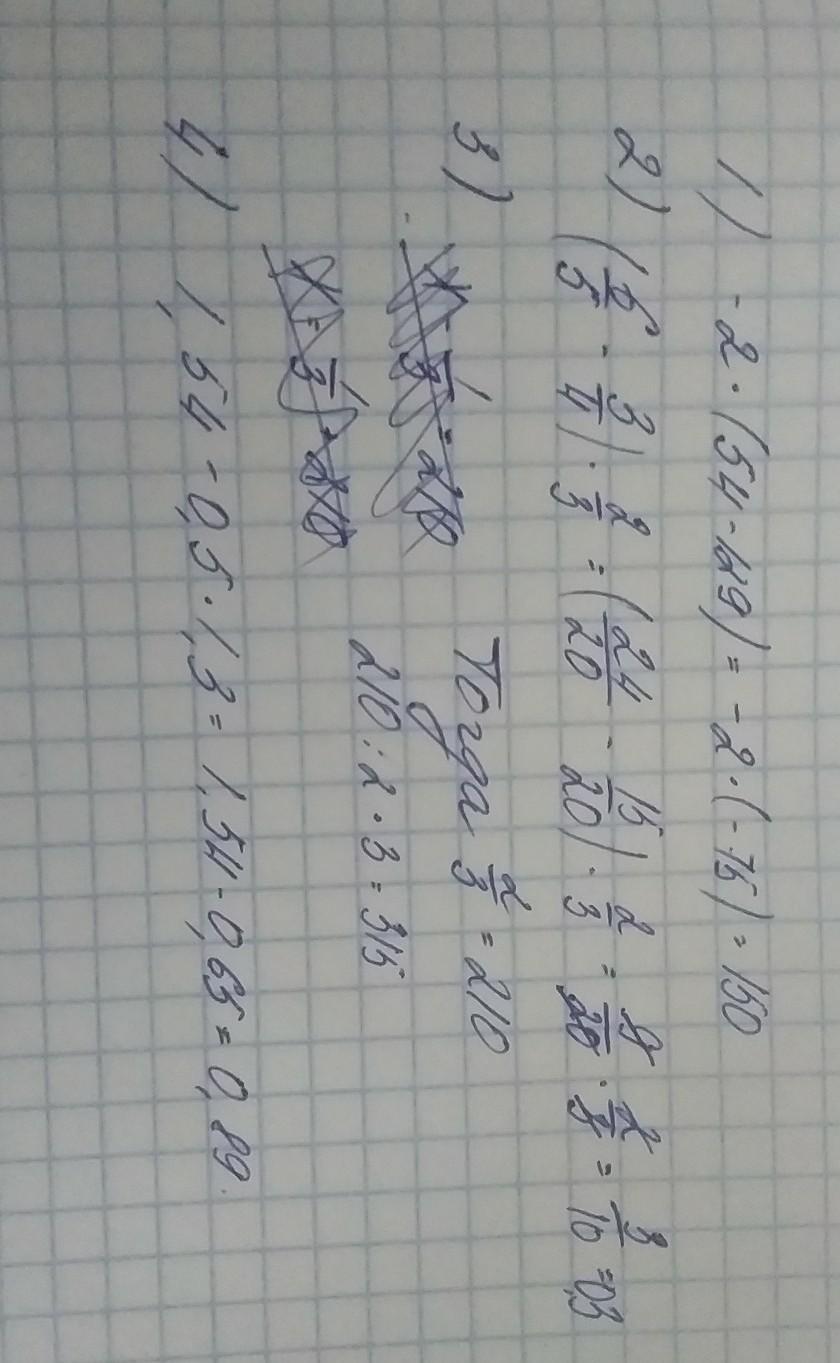 1) -2·(54-129)=-2·(-75)=150
2) (6/5 - 3/4)·2/3=(24/20 - 15/20)·2/3=9/20·2/3=3/10=0,3
3) Тогда 2/3=210
210:2·3=315
4) 1,54-0,5·1,3=1,54-0,65=0,89.